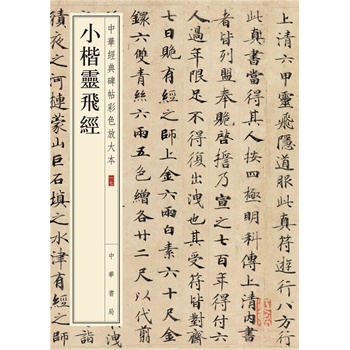 上清六甲靈飛隱道服此真符遊行八方行
此真書當得其人按四極明科傳上清内書
者皆列盟奉跪啓乃宣之七百年得付六
人過年限足不得復出洩也其受符皆對齋
七日有經之師上金六兩白素六十尺金
鐶六雙青絲六兩五色繒各廿二尺以代翦
中華經典碑帖彩色放大本
小楷靈飛經
中華書局
積夜之河蒙山巨石填之水津有經之師